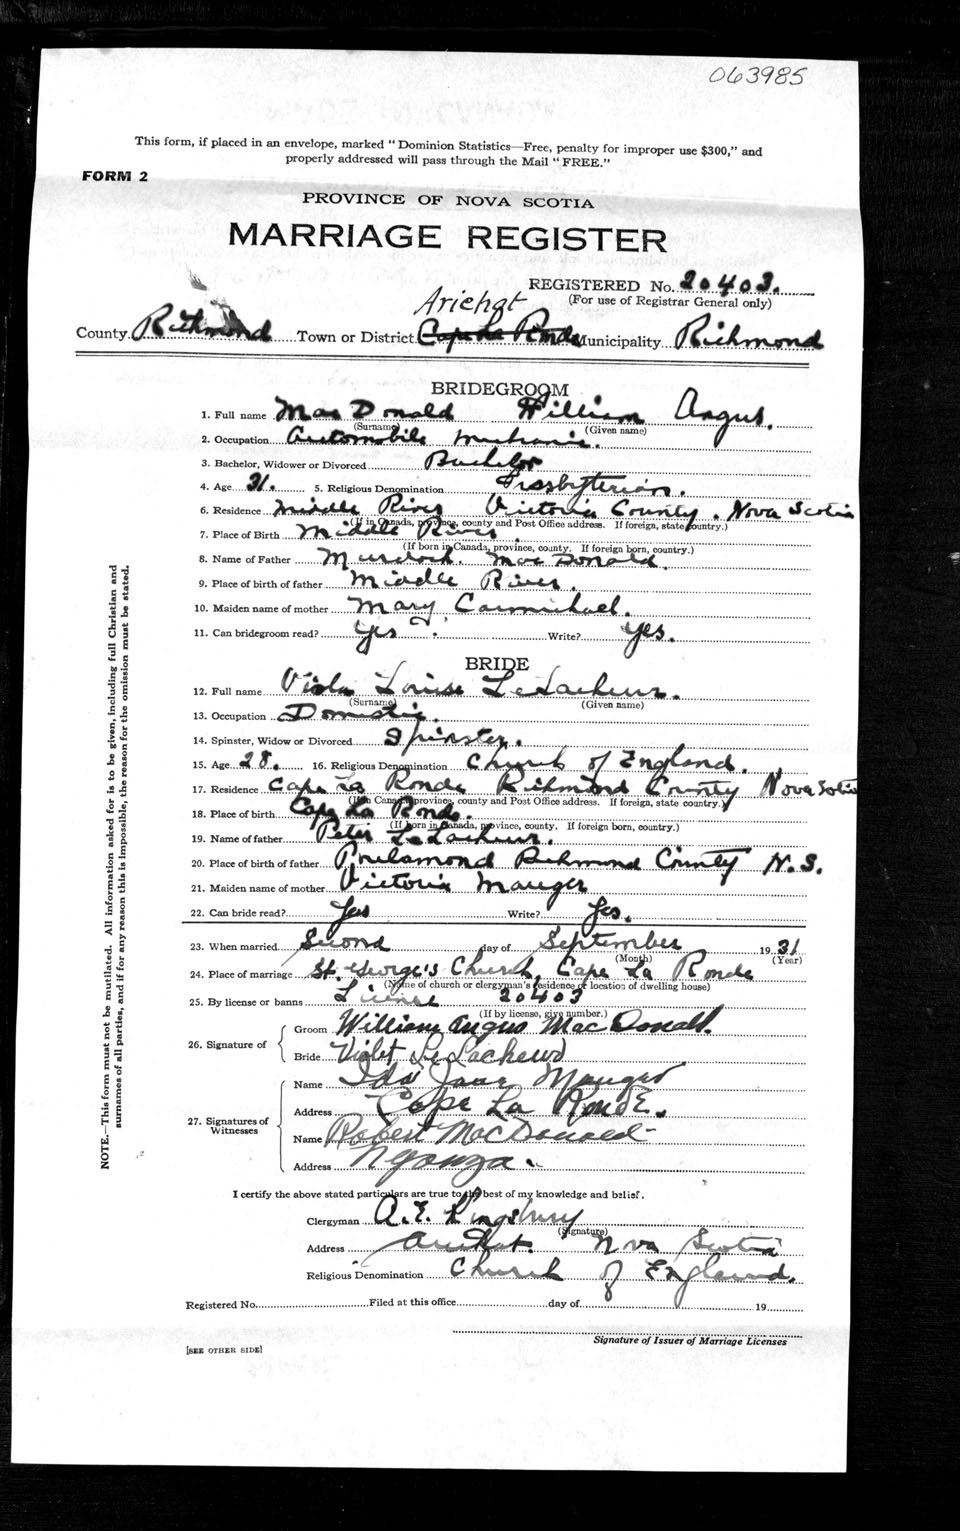 063985
This form, if placed in an envelope, marked "Dominion Statistics—Free, penalty for improper use $300," and
properly addressed will pass through the Mail "FREE."
FORM 2
PROVINCE OF NOVA SCOTIA
MARRIAGE REGISTER
REGISTERED No. 20403.
(For use of Registrar General only)
Arichat
County Richmond Town or District Cape La Ronde Municipality Richmond
BRIDEGROOM
1. Full name Mac Donald William Angus.
(Surname) (Given name)
2. Occupation Automobile mechanic.
3. Bachelor, Widower or Divorced Bachelor
4. Age 31. 5. Religious Denomination Presbyterian.
6. Residence Middle River Victoria County. Nova Scotia
(If in Canada, province, county and Post Office address. If foreign, state country.)
7. Place of Birth Middle River
(If born in Canada, province, county. If foreign born, country.)
8. Name of Father Murdoch. MacDonald.
9. Place of birth of father Middle River.
10. Maiden name of mother Mary Carmichael.
11. Can bridegroom read? Yes. Write? Yes.
BRIDE
12. Full name Viola Louise LeLacheur.
(Surname) (Given name)
13. Occupation Domestic.
14. Spinster, Widow or Divorced Spinster.
15. Age 28. 16. Religious Denomination Church of England.
17. Residence Cape La Ronde Richmond County Nova Scotia
(If in Canada, province, county and Post Office address. If foreign, state country.)
18. Place of birth Cape La Ronde.
(If born in Canada, province, county. If foreign born, country.)
19. Name of father Peter LeLacheur.
20. Place of birth of father Poulamond Richmond County N.S.
21. Maiden name of mother Victoria Mauger
22. Can bride read? Yes Write? Yes.
23. When married Second day of September 1931
(Month) (Year)
24. Place of marriage St. George's Church, Cape La Ronde
(Name of church or clergyman's residence or location of dwelling house)
25. By license or banns License 20403
(If by license, give number.)
26. Signature of
Groom William Angus MacDonald.
Bride Violet LeLacheur
27. Signatures of Witnesses
Name Ida Jane Mauger
Address Cape La Ronde.
Name Robert MacDonald
Address
I certify the above stated particulars are true to the best of my knowledge and belief.
Clergyman A. E. Kingsbury
(Signature)
Address Arichat. Nova Scotia
Religious Denomination Church of England.
Registered No. Filed at this office day of 19
Signature of Issuer of Marriage Licenses
[SEE OTHER SIDE]
NOTE.—This form must not be mutilated. All information asked for is to be given, including full Christian and
surnames of all parties, and if for any reason this is impossible, the reason for the omission must be stated.